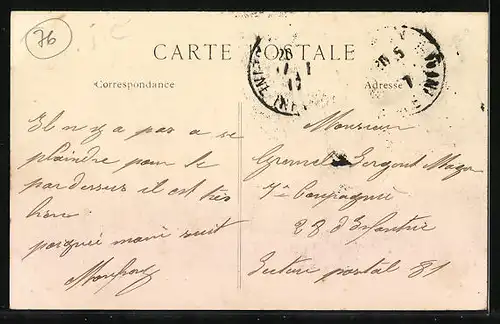 76
CARTE POSTALE
Correspondance
Adresse
Il n y a pas a se
plaindre pour le
pardessus il est très
bien
poignée main suit
Monsieur
Sergent Major
7e Compagnie
23 d'Infantrie
Secteur postal 81